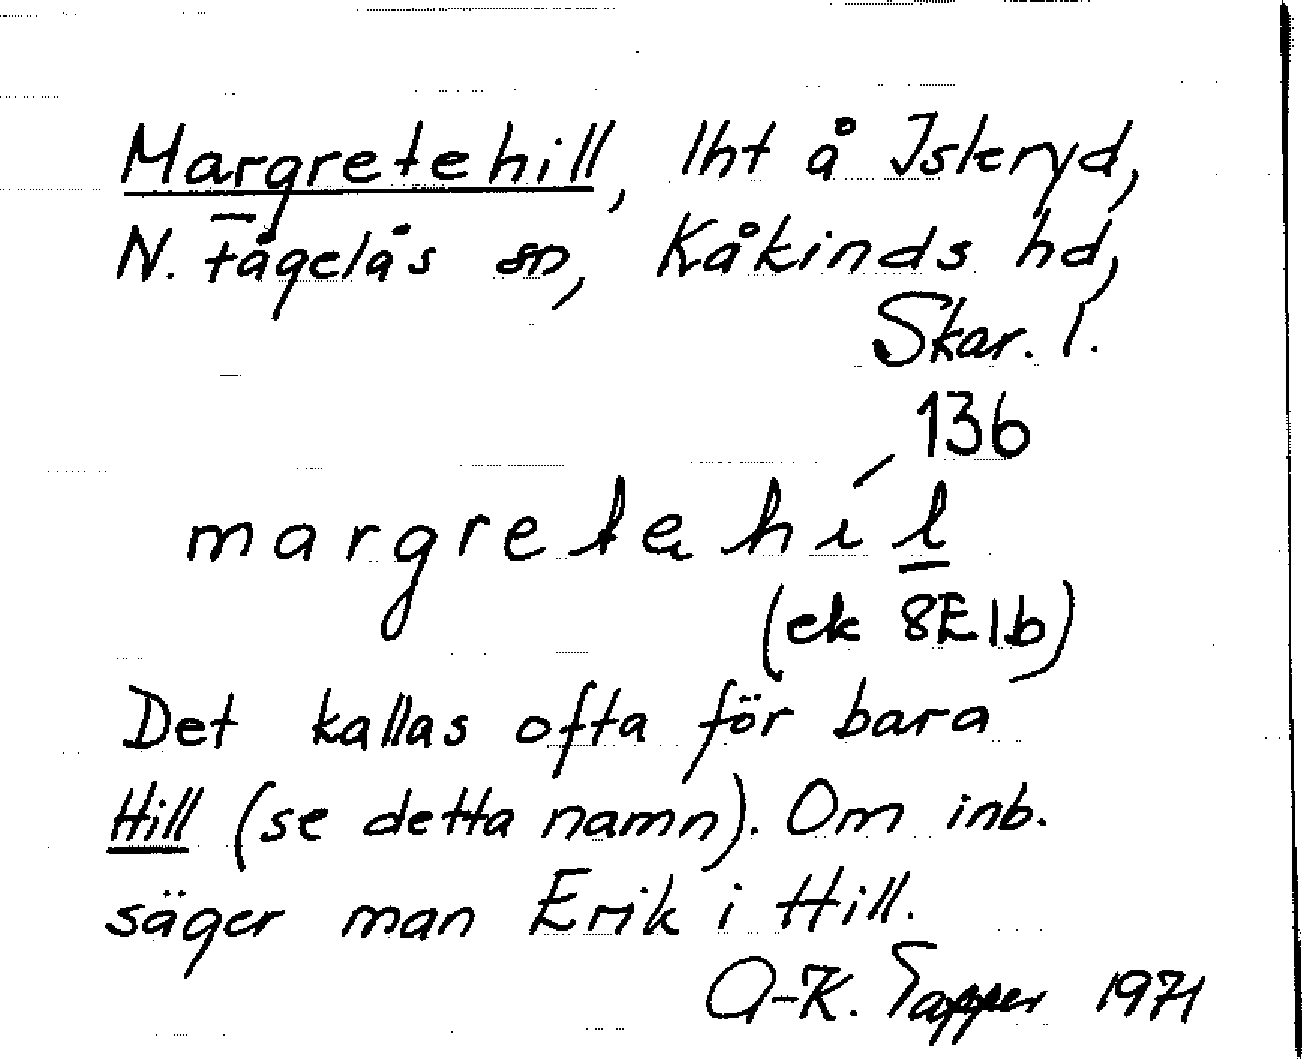 Margretehill, lht å Iskeryd,
N. Fågelås sn, Kåkinds hd,
Skar. l.
136
margretahil
(ek 8E1b)
Det kallas ofta för bara
Hill (se detta namn). Om inb.
säger man Erik i Hill.
A-K. Tapper 1971